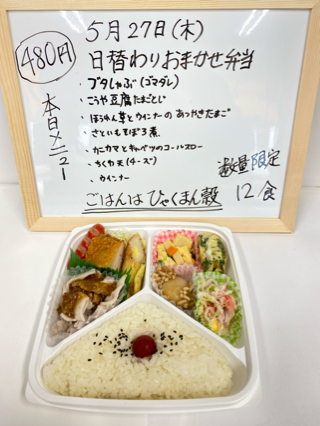 480円
5月27日(木)
日替わりおまかせ弁当
本日メニュー
・ブタしゃぶ(ゴマダレ)
・こうや豆腐たまごとじ
・ほうれん草とウインナーのあつやきたまご
・さといもそぼろ煮
・カニカマとキャベツのコールスロー
・ちくわ天(チーズ)
・ウインナー
数量限定
12食
ごはんはひゃくまん穀